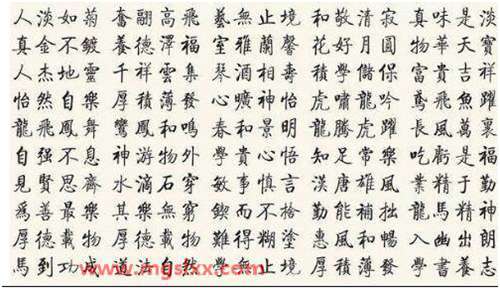 人淡如菊 奮翮高飛 藝無止境 和敬清寂 真味是淡
真金不鍍 養德澤福 室雅蘭馨 花好月圓 物華天寶
人杰地靈 千祥雲集 琴酒相壽 積學儲保 富貴吉祥
怡然自樂 厚積薄發 心曠神怡 虎嘯龍吟 鳶飛魚躍
龍飛鳳舞 鸞鳳和鳴 春和景明 龍騰虎躍 長風萬裏
自强不息 神游物外 學貴心悟 知足常樂 吃虧是福
見賢思齊 水滴石穿 敏事慎言 漢唐雄風 業精于勤
爲善最樂 其樂無窮 鍥而不捨 勤能補拙 龍馬精神
厚德載物 厚德 難得糊塗 惠風和暢 入幽出朗
馬到功成 道法自然 止境 厚積薄發 書養志
www.mgslxx.com